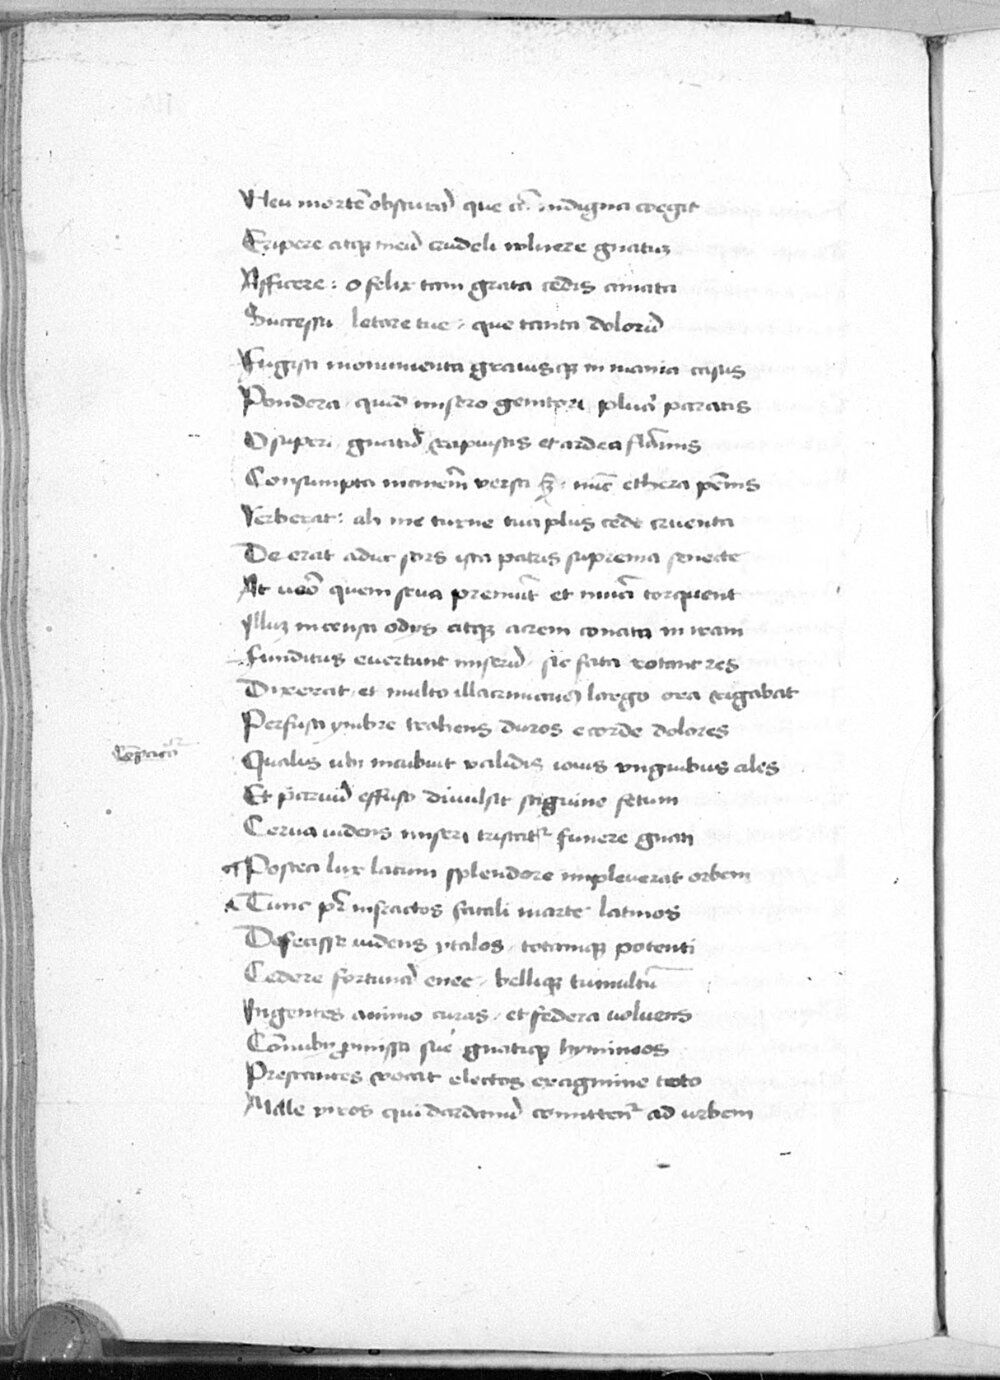 Heu mortē obscurā que tā indigna coegit
Eripere atq meū crudeli vulnere gnatuz
Afficere: o felix tam grata cedis amata
Successu letare tue, que tanta dolorū
Fugisti monumenta grauisq immania casus
Pondera, quid misero genitori plura paratis
O superi, gnatū rapuistis et ardea flāmis
Consumpta in cinerem versa ē, nūc ethera pēnis
Verberat: ah me turne tua plus cede cruenta
De erat aduc sors ista patris suprema senecte
At uero quem seua premūt et numīa torquent
Illuz incensa odijs atq acrem concita in iram
Funditus euertunt miserū, sic fata rotant res
Dixerat et multo illacrimans largo ora rigabat
Perfusa ymbre trahens duros e corde dolores
Compacio
Qualis ubi incubuit validis iouis vnguibus ales
Et paruū effuso diuulsit sāguine fetum
Cerua uidens miseri tristatur funere gnati
Postea lux latum splendore impleuerat orbem
Tunc pr infractos fatali marte latinos
Defecisse uidens ytalos, totamq potenti
Cedere fortunā enee, belliq tumultū
Ingentes animo curas, et federa voluens
Cōnubij promissa sue gnatiq hymineos
Prestantes vocat electos ex agmine toto
Mille viros qui dardaniū comittent ad urbem